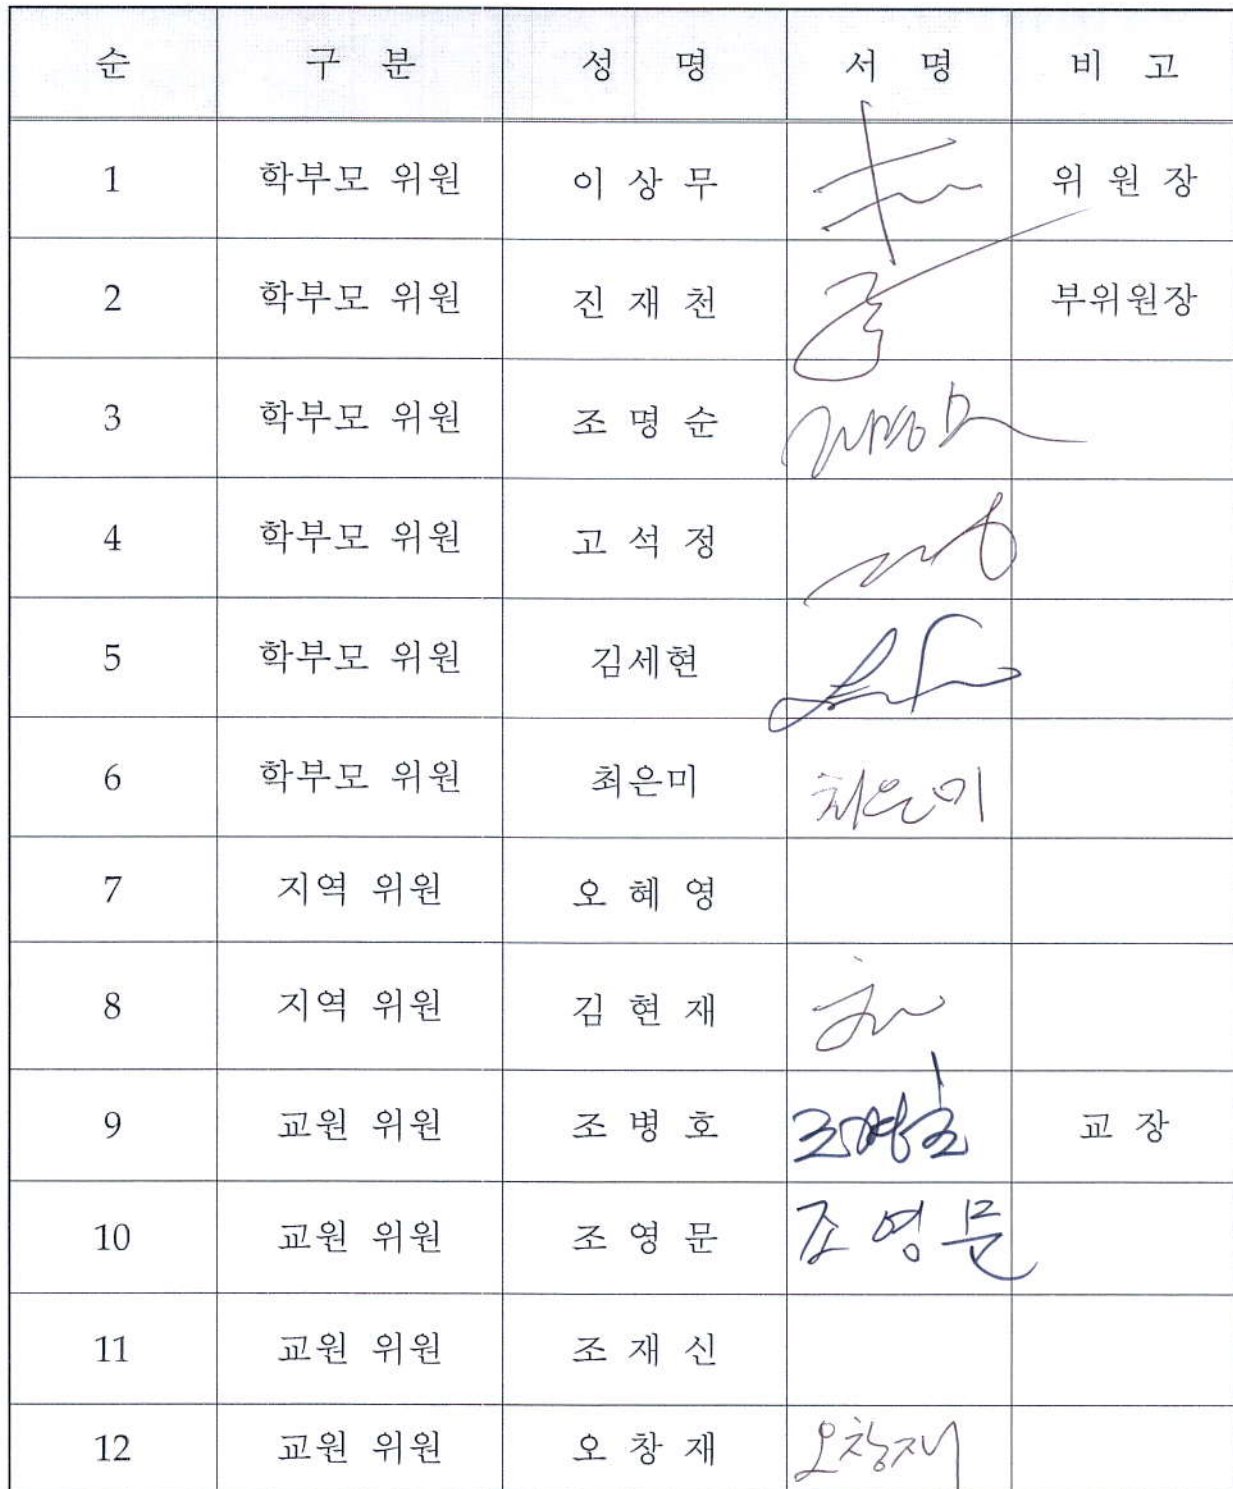 순 구 분 성 명 서 명 비 고
1 학부모 위원 이 상 무 위 원 장
2 학부모 위원 진 재 천 부위원장
3 학부모 위원 조 명 순
4 학부모 위원 고 석 정
5 학부모 위원 김세현
6 학부모 위원 최은미 최은미
7 지역 위원 오 혜 영
8 지역 위원 김 현 재
9 교원 위원 조 병 호 조병호 교 장
10 교원 위원 조 영 문 조 영 문
11 교원 위원 조 재 신
12 교원 위원 오 창 재 오창재